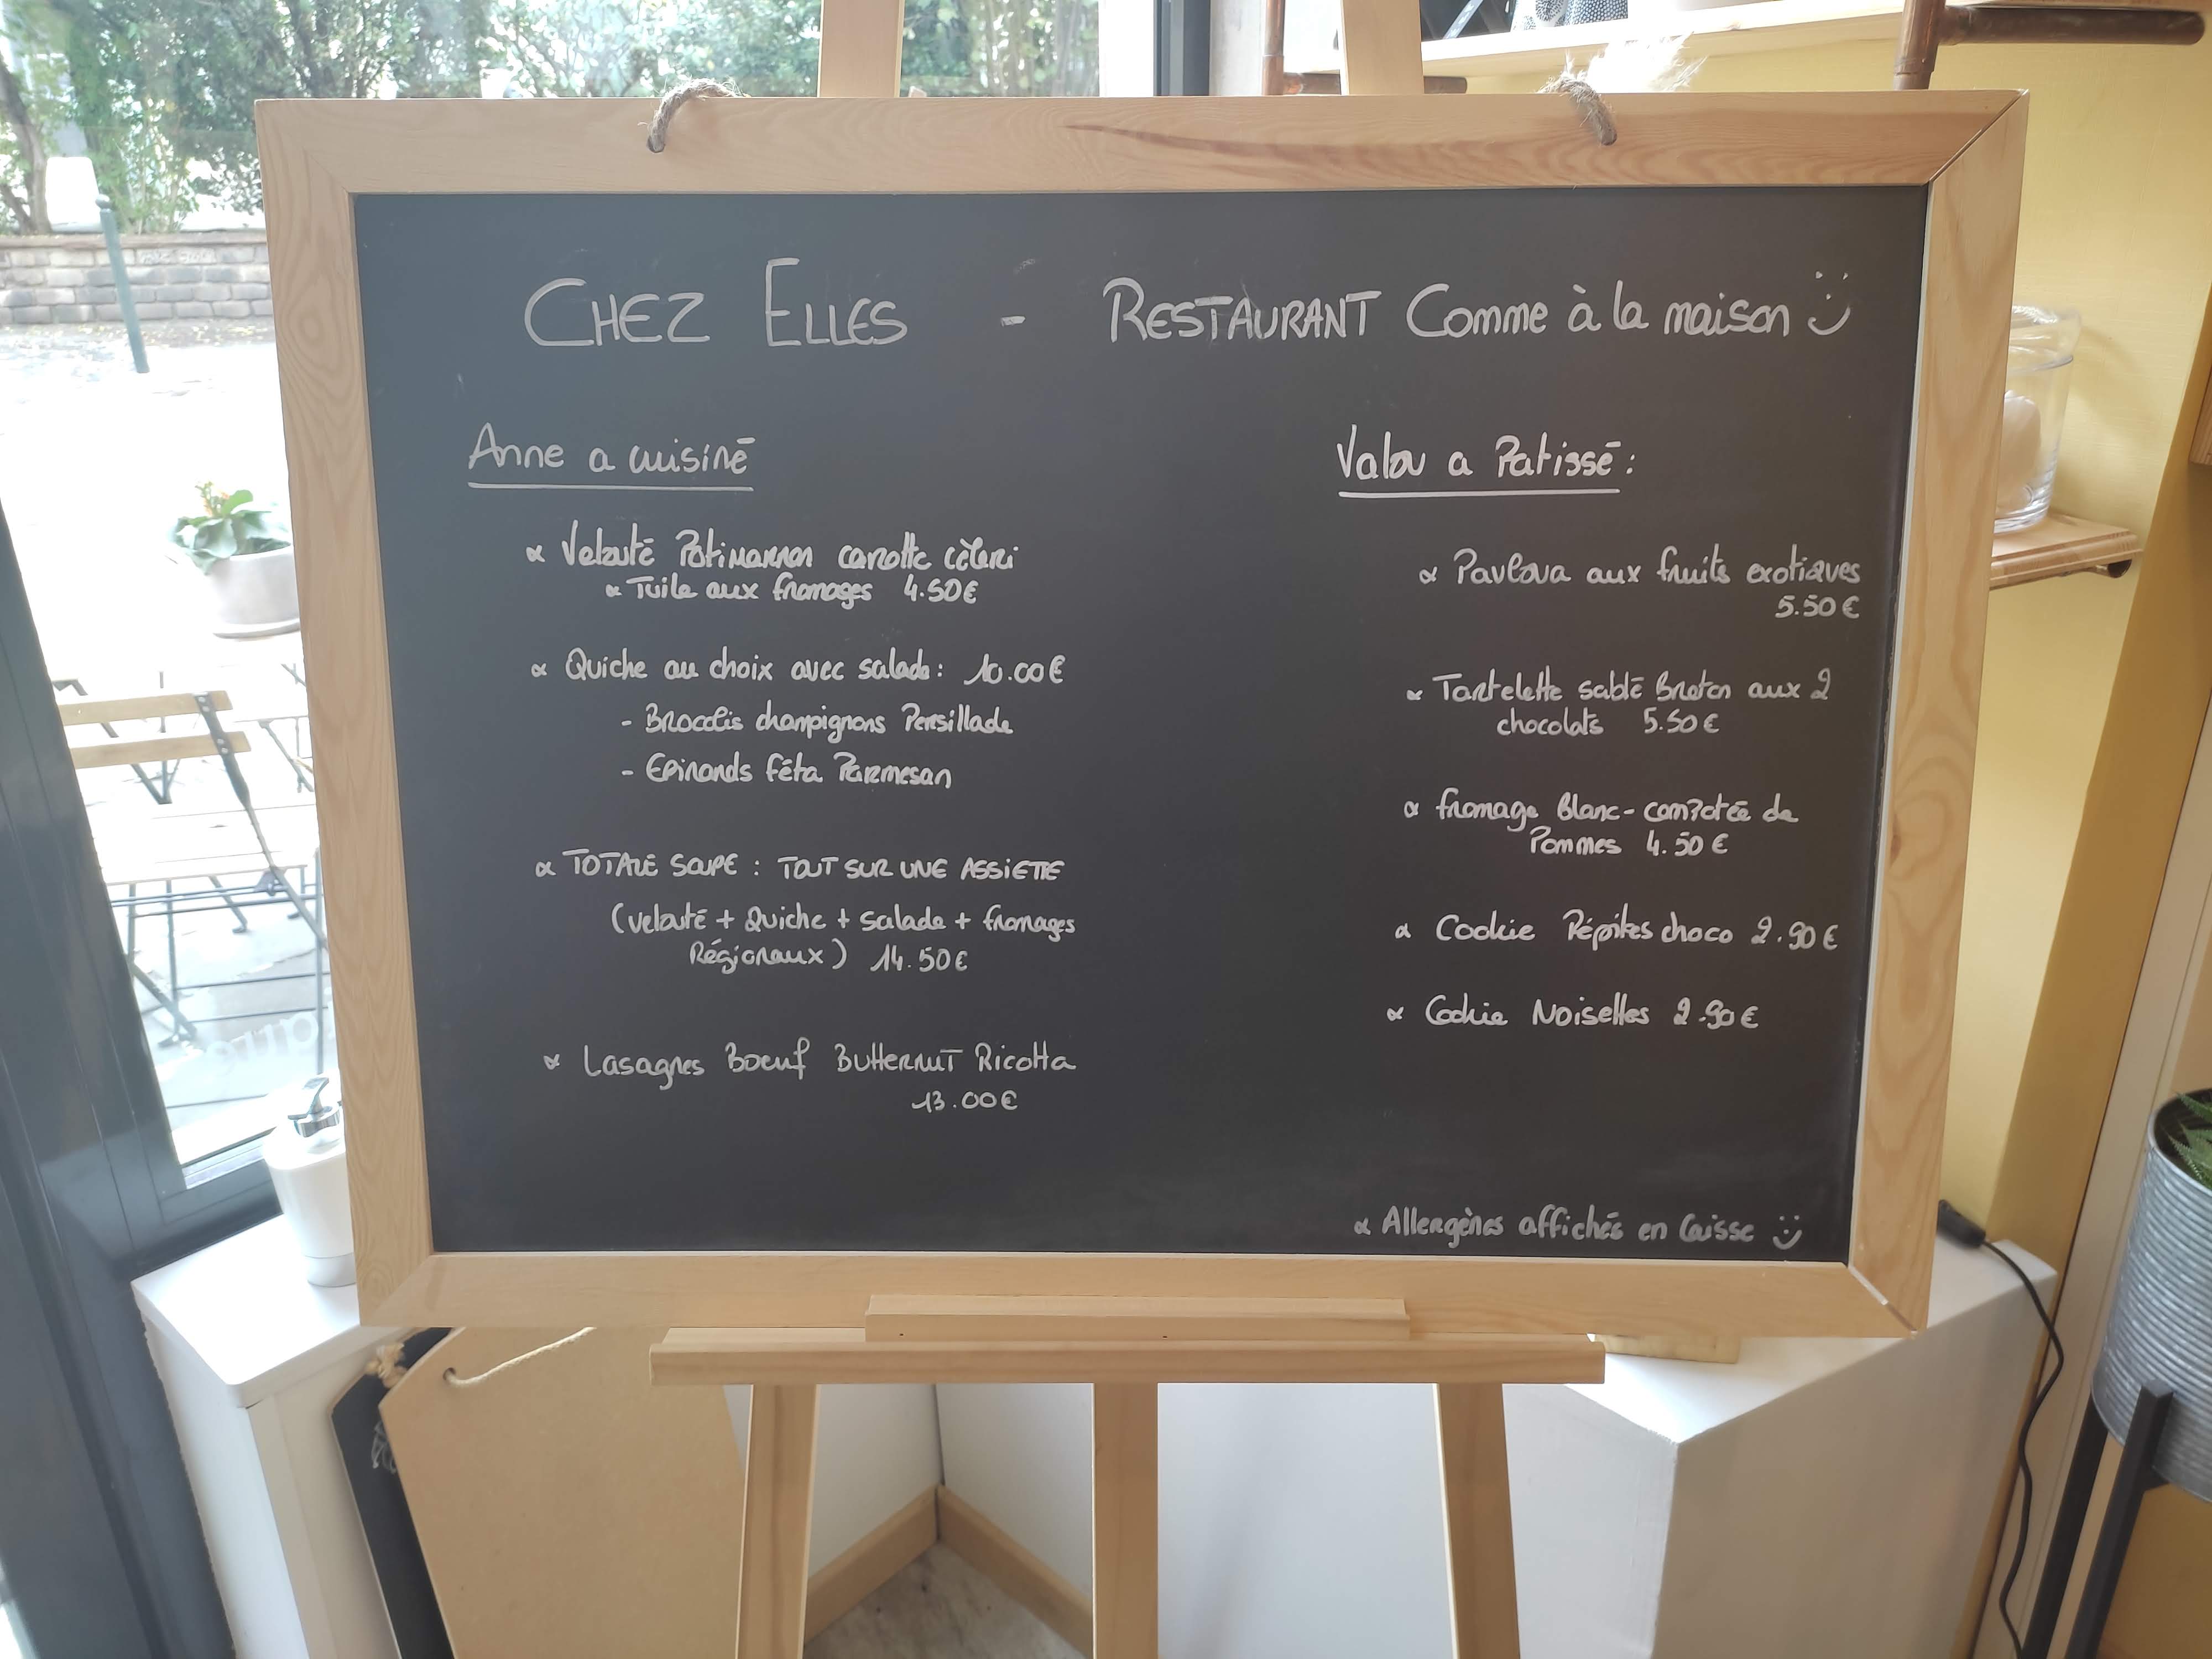 CHEZ ELLES - RESTAURANT Comme à la maison
Anne a cuisiné
Velouté Potimarron carotte céleri
Tuile aux fromages 4.50€
Quiche au choix avec salade: 10.00€
- Brocolis champignons Persillade
- Epinards féta Parmesan
TOTALE SOUPE : TOUT SUR UNE ASSIETTE
(velouté + Quiche + salade + fromages
Régionaux) 14.50€
Lasagnes Boeuf Butternut Ricotta
13.00€
Valou a Patissé:
Pavlova aux fruits exotiques
5.50€
Tartelette sablé Breton aux 2
chocolats 5.50€
fromage Blanc-compotée de
Pommes 4.50€
Cookie Pépites choco 2.90€
Cookie Noisettes 2.90€
Allergènes affichés en Caisse